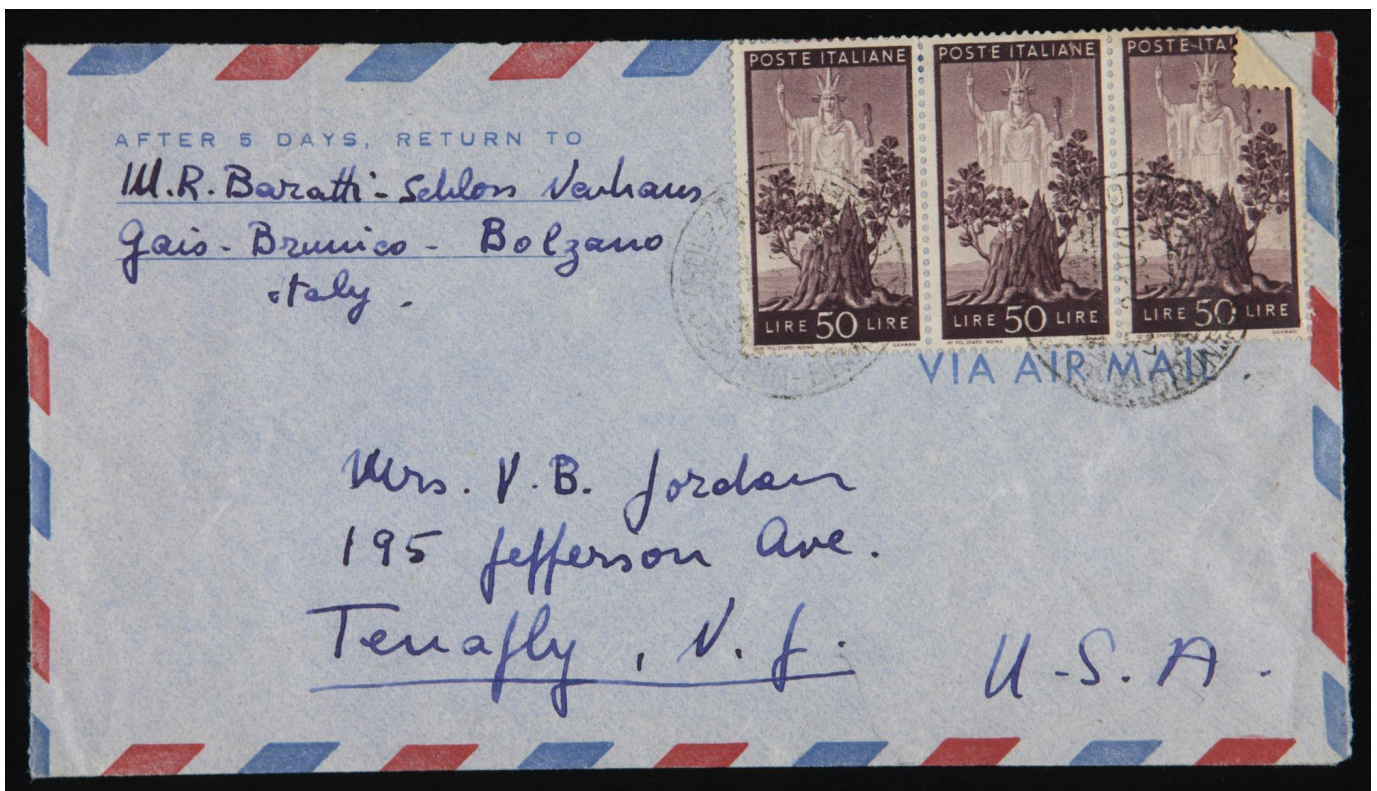 AFTER 5 DAYS, RETURN TO
M.R. Baratti - Schloss Neuhaus
Gais - Brunico - Bolzano
Italy.
POSTE ITALIANE POSTE ITALIANE POSTE ITA
LIRE 50 LIRE LIRE 50 LIRE LIRE 50 LIRE
VIA AIR MAIL
Mrs. V. B. Jordan
195 Jefferson Ave.
Tenafly, N. J.
U.S.A.